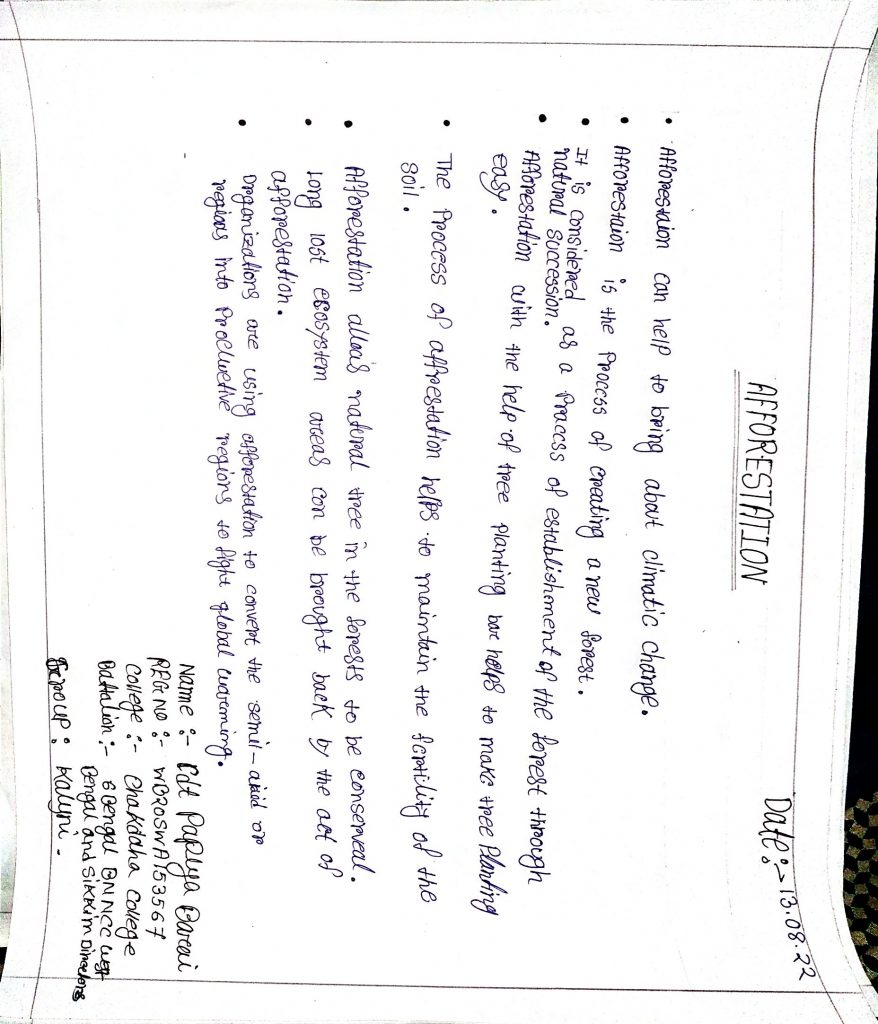 Date:- 13.08.22
AFFORESTATION
• Afforestaion can help to bring about climatic change.
• Afforestaion is the Process of creating a new forest.
• It is considered as a Process of establishment of the forest through
natural succession.
• Afforestation with the help of tree planting bar helps to make tree Planting
easy.
• The Process of affrestation helps to maintain the fertility of the
soil.
• Afforestation allows natural tree in the forests to be conserved.
• Long lost ecosystem areas can be brought back by the act of
afforestation.
• Organizations are using afforestation to convert the semi-arid or
regions into Productive regions to fight global warming.
Name:- Cdt Papiya Barai
REG NO:- WB20SWA153567
College:- Chakdaha College
Battalion:- 6 Bengal BN NCC West
Bengal and Sikkim
Group: Kalyni.